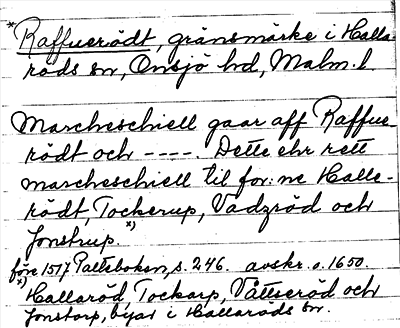 *Raffuerödt, gränsmärke i Halla-
röds sn, Onsjö hd, Malm. l.
Marcheschiell gaar aff Raffue-
rödt och ----. Dette ehr rett
marcheschiell til for:ne Halle-
rödt, Tockerup, Vadzröd och
Jonstrup.*)
före 1517 Palteboken, s. 246. avskr. o. 1650.
*) Hallaröd, Tockarp, Våttseröd och
Jonstorp, byar i Hallaröds sn.